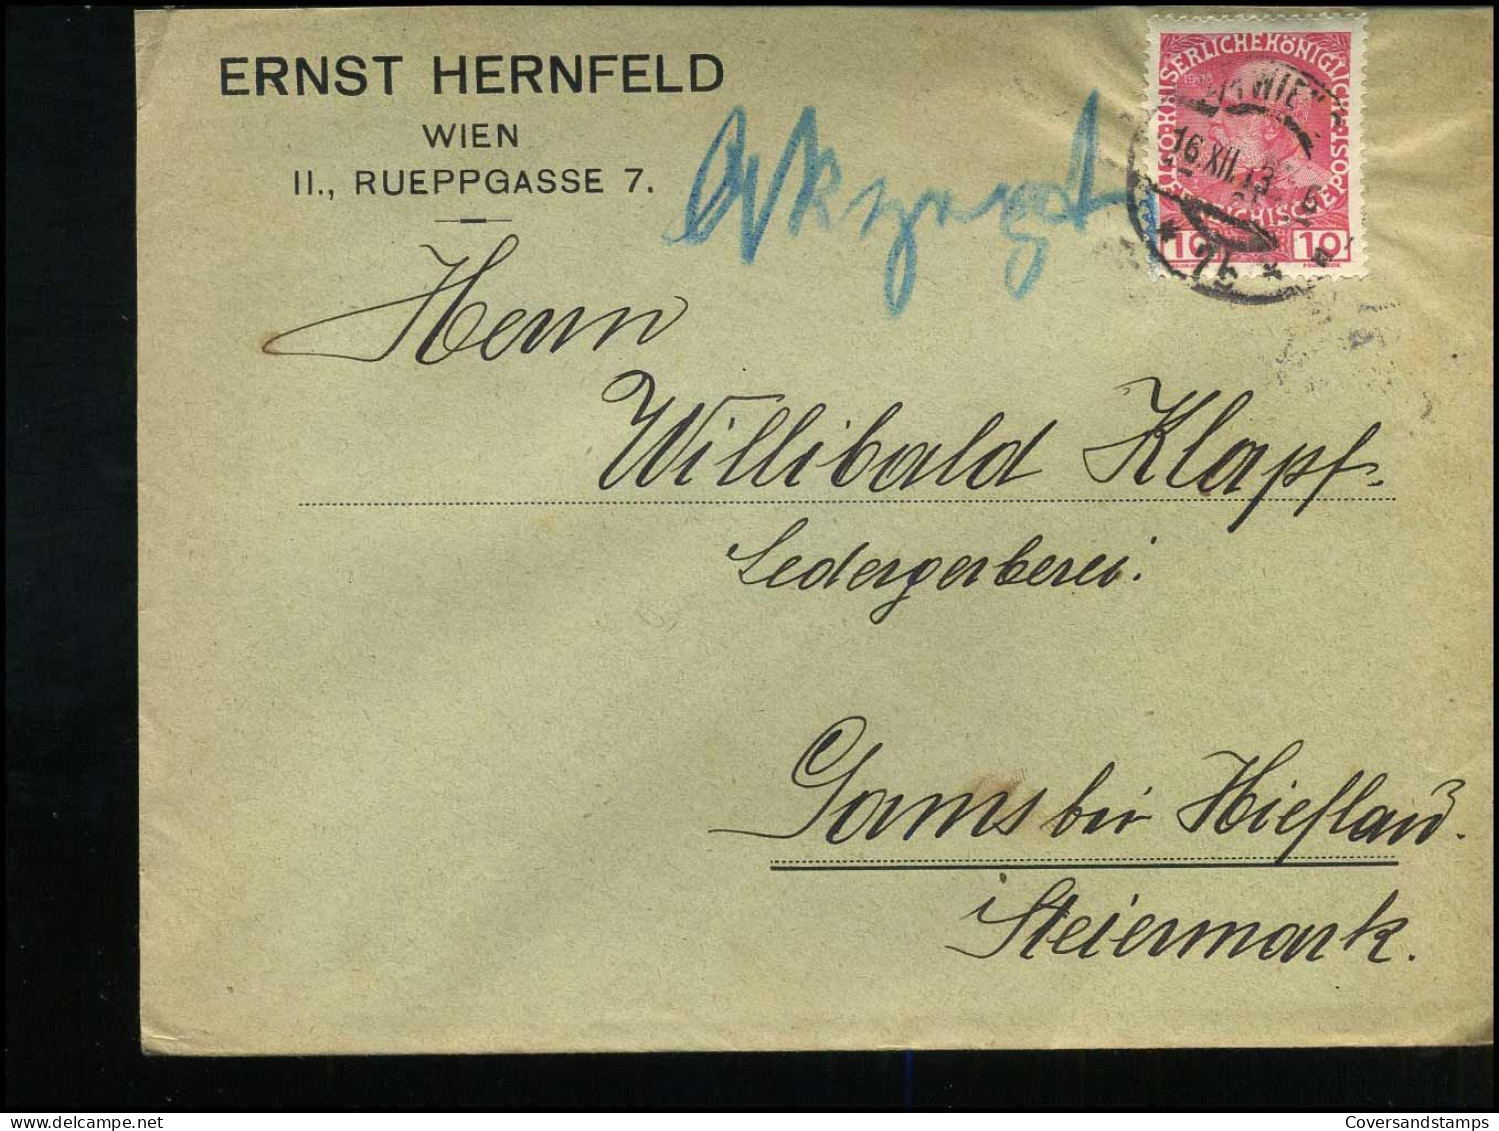 ERNST HERNFELD
WIEN
II., RUEPPGASSE 7.
Akzept
KAISERLICHE KÖNIGLICHE
ÖSTERREICHISCHE POST
1908
WIEN
16.XII.13
10 10
Herrn
Willibald Klapf.
Ledergerberei.
Gams bei Hieflau.
Steiermark.
Coversandstamps